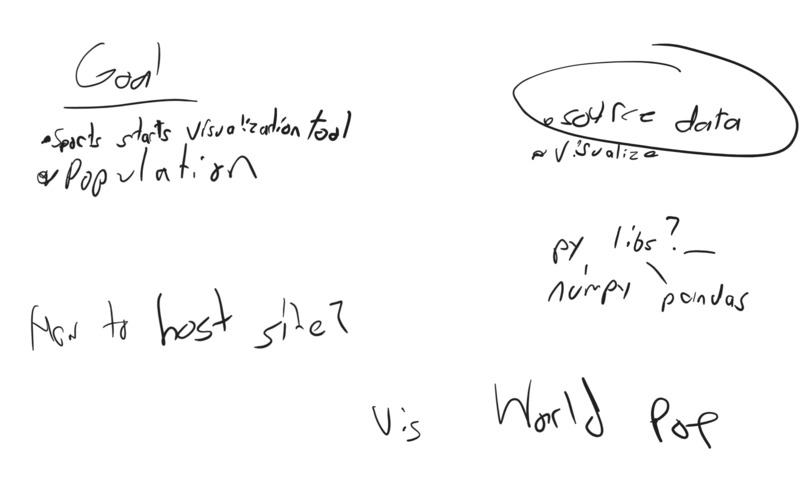 Goal
• Sports starts visualization tool
• Population
• source data
• Visualize
py libs?
numpy pandas
How to host site?
Vis World Pop